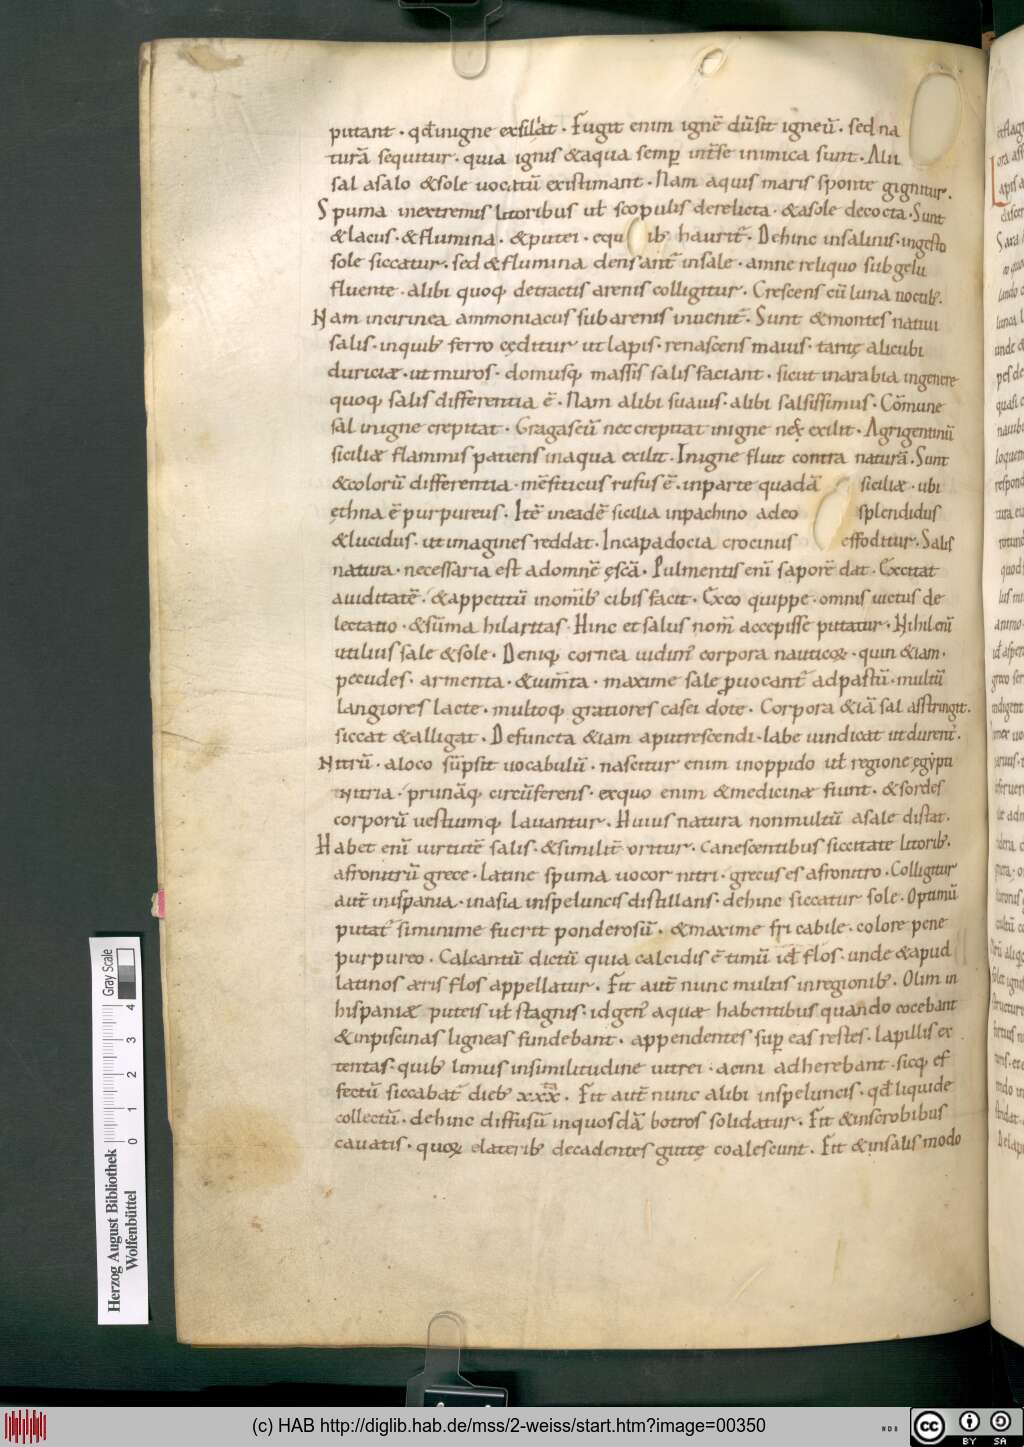 putant · qđ inigne exsiliat · Fugit enim ignē dū sit igneū · sed na
turā sequitur · quia ignis &aqua semp̄ int̄ se inimica sunt · Alii
sal asalo &sole uocatū existimant · Nam aquis maris sponte gignitur .
Spuma inextremis litoribus uł scopulis derelicta · &asole decocta · Sunt
&lacus · &flumina · &putei · equ ib; haurit̄ · Dehinc insalinis · ingesto
sole siccatur · sed &flumina densant̄ insale · amne reliquo sub gelu
fluente · alibi quoq; detractis arenis colligitur · Crescens cū luna noctib; .
Nam incirinea ammoniacus sub arenis inuenit̄ · Sunt &montes natiui
salis · inquib; ferro cęditur ut lapis · renascens maius · tantę alicubi
duriciæ · ut muros · domusq; massis salis faciant · sicut inarabia ingenere
quoq; salis differentia ē · Nam alibi suauis · alibi salsissimus · Cōmune
sal inigne crepitat · Gragaseū nec crepitat inigne nec exilit · Agrigentinū
siciliæ flammis patiens inaqua exilit · Inigne fluit contra naturā · Sunt
&colorū differentia · mēfiticus rufus ē . inparte quadā siciliæ · ubi
ęthna ē purpureus · Itē ineadē sicilia inpachino adeo splendidus
&lucidus · ut imagines reddat · Incapadocia crocinus effoditur · Salis
natura · necessaria est adomnē ęscā · Pulmentis eni͞ saporē dat · Excitat
auiditatē · &appetitū inomib; cibis facit · Exeo quippe · omnis uictus de
lectatio · &sūma hilaritas · Hinc et salus nom̄ accepisse putatur · Nihil eni͞
utilius sale &sole · Deniq; cornea uidim; corpora nauticoꝝ · quin &iam ·
pecudes · armenta · &ium̄ta · maxime sale ꝓuocant̄ adpastū · multū
langiores lacte · multoq; gratiores casei dote · Corpora &iā sal asstringit .
siccat &alligat · Defuncta &iam aputrescendi · labe uindicat ut durent̄ .
Nitrū · aloco sūpsit uocabulū · nascitur enim inoppido uł regione ęgypti
nitria · prunāq; circūferens · exquo enim &medicinæ fiunt · &sordes
corporū uestiumq; lauantur · Huius natura nonmultū asale distat .
Habet eni͞ uirtutē salis · &similit̄ oritur · canescentibus siccitate litorib; .
afronitrū grece · latine spuma uocor nitri · grecus es afronitro · Colligitur
aut̄ inispania · inasia inspeluncis distillans · dehinc siccatur sole · Optimū
putat̄ siminime fuerit ponderosū · &maxime fri cabile · colore pene
purpureo · Calcantū dictū quia calcidis ē timū id̄ flos · unde &apud
latinos æris flos appellatur · Fit aut̄ nunc multis inregionib; . Olim in
hispaniæ puteis uł stagnis · id gen; aquæ habentibus quando cocebant
&inpiscinas ligneas fundebant · appendentes sup̄ eas restes · lapillis ex
tentas · quib; limus insimilitudine uitrei · acini adherebant · sicq; ef
fectū siccabat̄ dieb; xxx · Fit aut̄ nunc alibi inspeluncis · qđ liquide
collectū · dehinc diffusū inquosdā botros solidatur · Fit &inscrobibus
cauatis · quoꝝ elaterib; decadentes guttę coalescunt · Fit &insalis modo
Herzog August Bibliothek
Wolfenbüttel
Gray Scale
0 1 2 3 4
(c) HAB http://diglib.hab.de/mss/2-weiss/start.htm?image=00350
cc BY SA